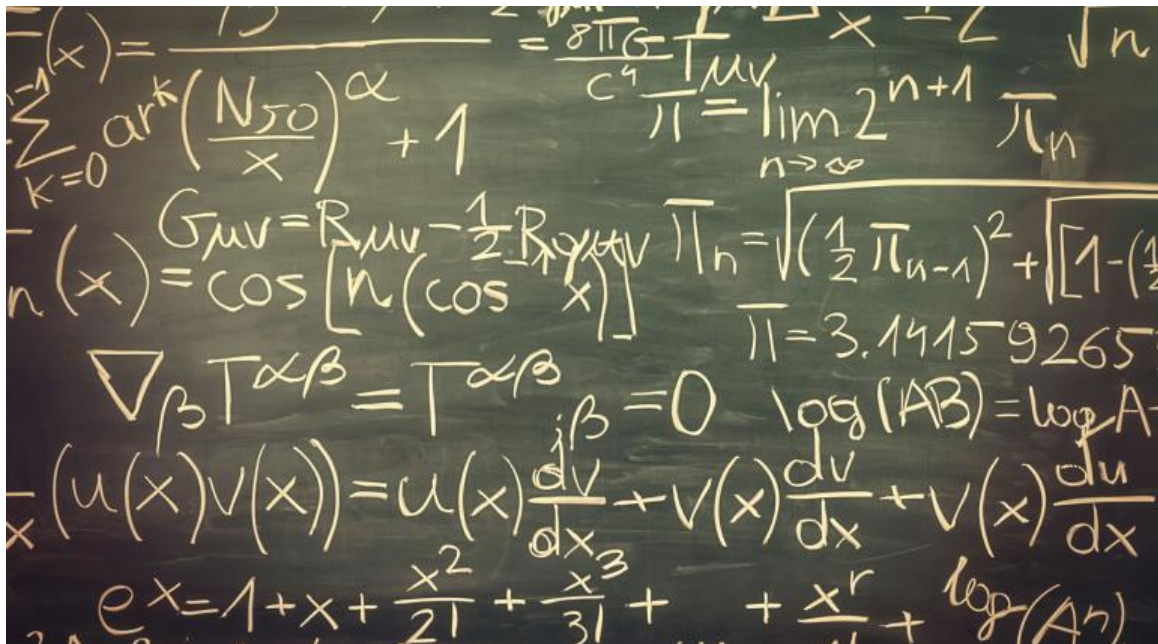 (x) =
= 8πG/c⁴ Tμν
√n
∑ k=0 ar^k (N50/x)^α + 1
π = lim n→∞ 2^(n+1) πn
Gμν = Rμν - 1/2 R
πn = √((1/2 πn-1)² + √[1-(1/2
n(x) = cos [n(cos⁻¹ x)]
π = 3.1415 9265
∇β T^αβ = T^αβ ;β = 0
log(AB) = log A
x (u(x)v(x)) = u(x) dv/dx + v(x) dv/dx + v(x) du/dx
e^x = 1 + x + x²/2! + x³/3! + + x^r +
log(An)